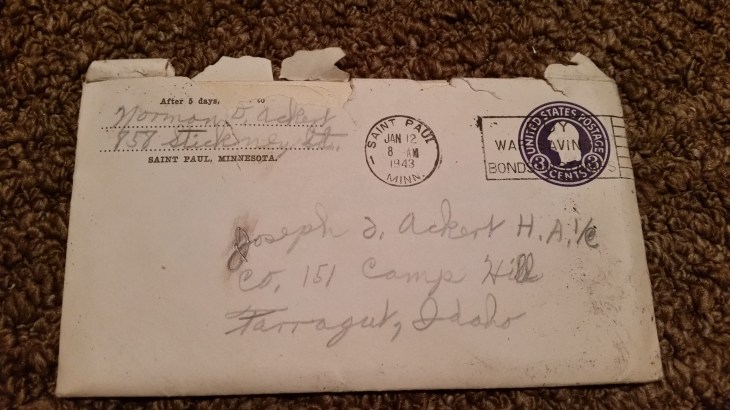 After 5 days, to
Norman D Ackert
958 Stickney St.
SAINT PAUL, MINNESOTA.
SAINT PAUL
JAN 12
8 AM
1943
MINN.
UNITED STATES POSTAGE
3 CENTS 3
BONDS
Joseph D. Ackert H.A.1/c
Co, 151 Camp Hill
Farragut, Idaho